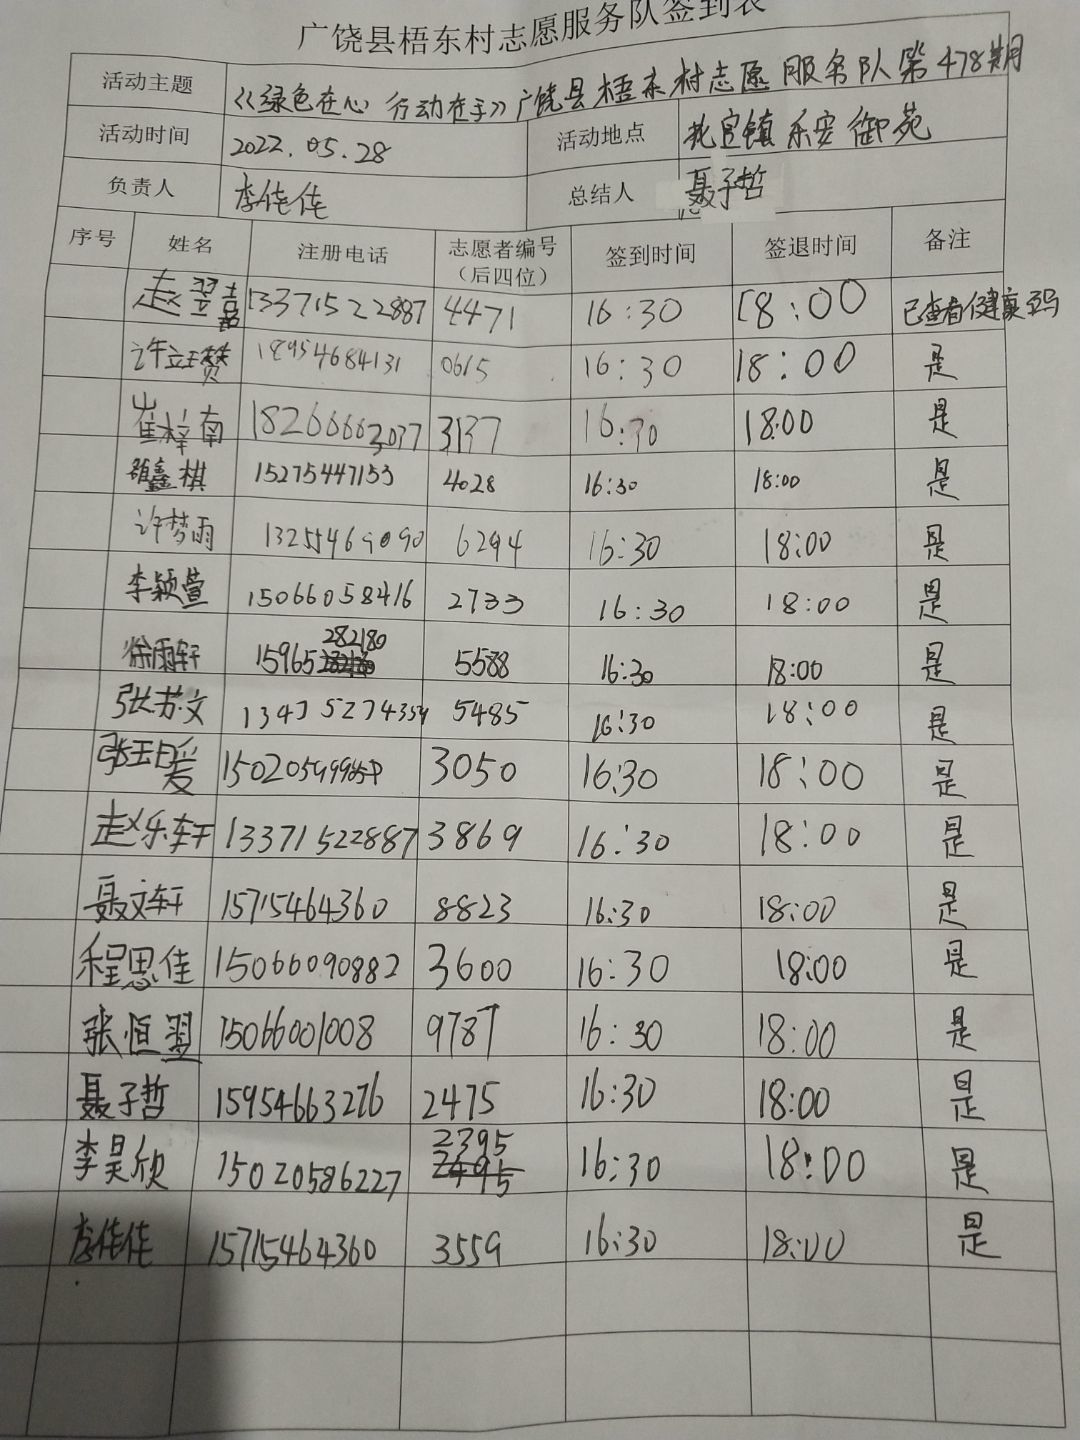 广饶县梧东村志愿服务队签到表
活动主题 《绿色在心 行动在手》广饶县梧东村志愿服务队第478期
活动时间 2022.05.28 活动地点 乐安御苑
负责人 李佳佳 总结人 聂子哲
序号 姓名 注册电话 志愿者编号（后四位） 签到时间 签退时间 备注
赵翌喆 13371522887 4471 16:30 18:00 已查看健康码
许立赞 18954684131 0615 16:30 18:00 是
崔梓南 18266663037 3137 16:30 18:00 是
鑫棋 15275447153 4028 16:30 18:00 是
许梦雨 13255469090 6294 16:30 18:00 是
李颖萱 15066058416 2733 16:30 18:00 是
徐雨轩 15965282180 5588 16:30 18:00 是
张苏文 13475274354 5485 16:30 18:00 是
张玉爱 3050 16:30 18:00 是
赵乐轩 13371522887 3869 16:30 18:00 是
聂文轩 15715464360 8823 16:30 18:00 是
程思佳 15066090882 3600 16:30 18:00 是
张恒翌 15066001008 9787 16:30 18:00 是
聂子哲 15954663276 2475 16:30 18:00 是
李昊欣 15020586227 2395 16:30 18:00 是
李佳佳 15715464360 3559 16:30 18:00 是